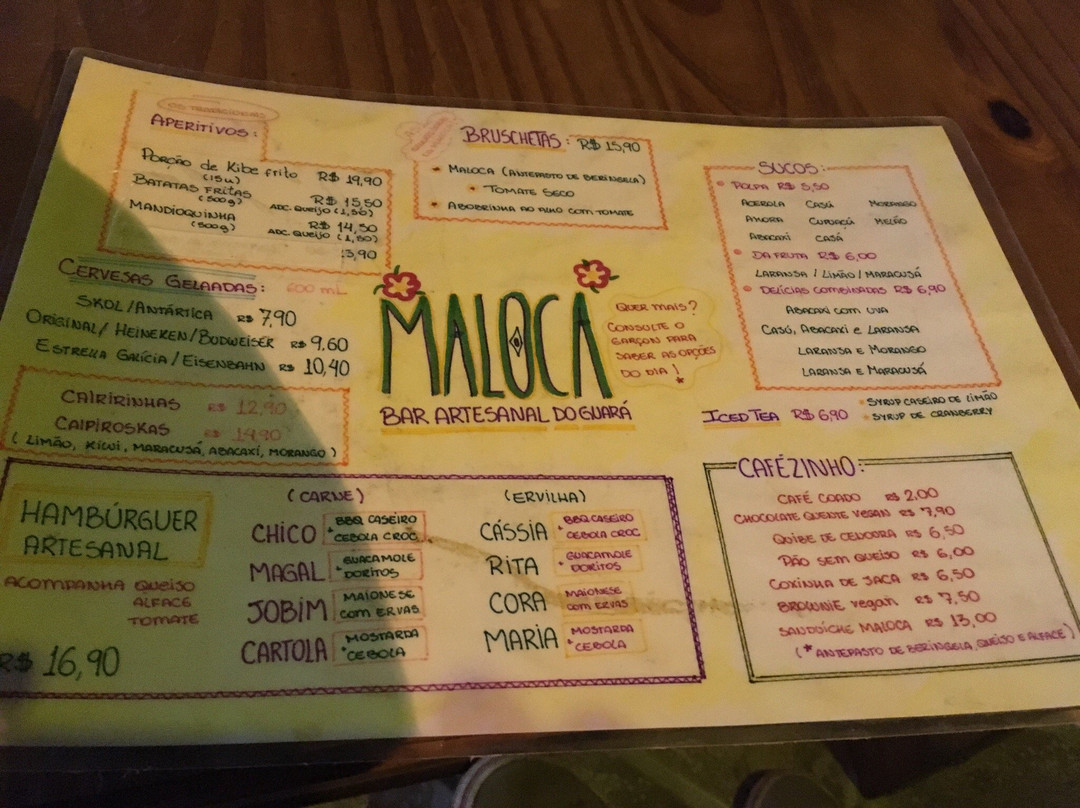 OS TRADICIONAIS
APERITIVOS:
PORÇÃO de Kibe frito R$ 19,90
(15u)
BATATAS FRITAS R$ 15,50
(500g) ADC. QUEIJO (1,50)
MANDIOQUINHA R$ 14,50
(500g) ADC. QUEIJO (1,50)
13,90
CERVEJAS GELAADAS: 600 mL
SKOL/ANTÁRTICA R$ 7,90
ORIGINAL/ HEINEKEN/BUDWEISER R$ 9,60
ESTRELLA GALÍCIA/EISENBAHN R$ 10,40
CAIPIRINHAS R$ 12,90
CAIPIROSKAS R$ 14,90
( LIMÃO, KIWI, MARACUJÁ, ABACAXI, MORANGO )
BRUSCHETAS: R$ 15,90
MALOCA (ANTEPASTO DE BERINGELA)
TOMATE SECO
ABOBRINHA AO ALHO COM TOMATE
MALOCA
BAR ARTESANAL DO GUARÁ
QUER MAIS?
CONSULTE O
GARÇON PARA
SABER AS OPÇÕES
DO DIA!
SUCOS:
POLPA R$ 5,50
ACEROLA CAJÚ MORANGO
AMORA CUPUAÇÚ MELÃO
ABACAXI CAJÁ
DA FRUTA R$ 6,00
LARANJA / LIMÃO / MARACUJÁ
DELÍCIAS COMBINADAS R$ 6,90
ABACAXI COM UVA
CAJÚ, ABACAXI E LARANJA
LARANJA E MORANGO
LARANJA E MARACUJÁ
ICED TEA R$ 6,90 * SYRUP CASEIRO DE LIMÃO
* SYRUP DE CRANBERRY
HAMBÚRGUER
ARTESANAL
ACOMPANHA QUEIJO
ALFACE
TOMATE
R$ 16,90
(CARNE)
CHICO BBQ CASEIRO
* CEBOLA CROC
MAGAL * GUACAMOLE
* DORITOS
JOBIM MAIONESE
COM ERVAS
CARTOLA * MOSTARDA
* CEBOLA
(ERVILHA)
CÁSSIA BBQ CASEIRO
* CEBOLA CROC
RITA * GUACAMOLE
* DORITOS
CORA MAIONESE
COM ERVAS
MARIA * MOSTARDA
* CEBOLA
CAFÉZINHO:
CAFÉ COADO R$ 2,00
CHOCOLATE QUENTE VEGAN R$ 7,90
QUIBE DE CENOURA R$ 6,50
PÃO SEM QUEIJO R$ 6,00
COXINHA DE JACA R$ 6,50
BROWNIE vegan R$ 7,50
SANDUÍCHE MALOCA R$ 13,00
(* ANTEPASTO DE BERINGELA, QUEIJO E ALFACE)